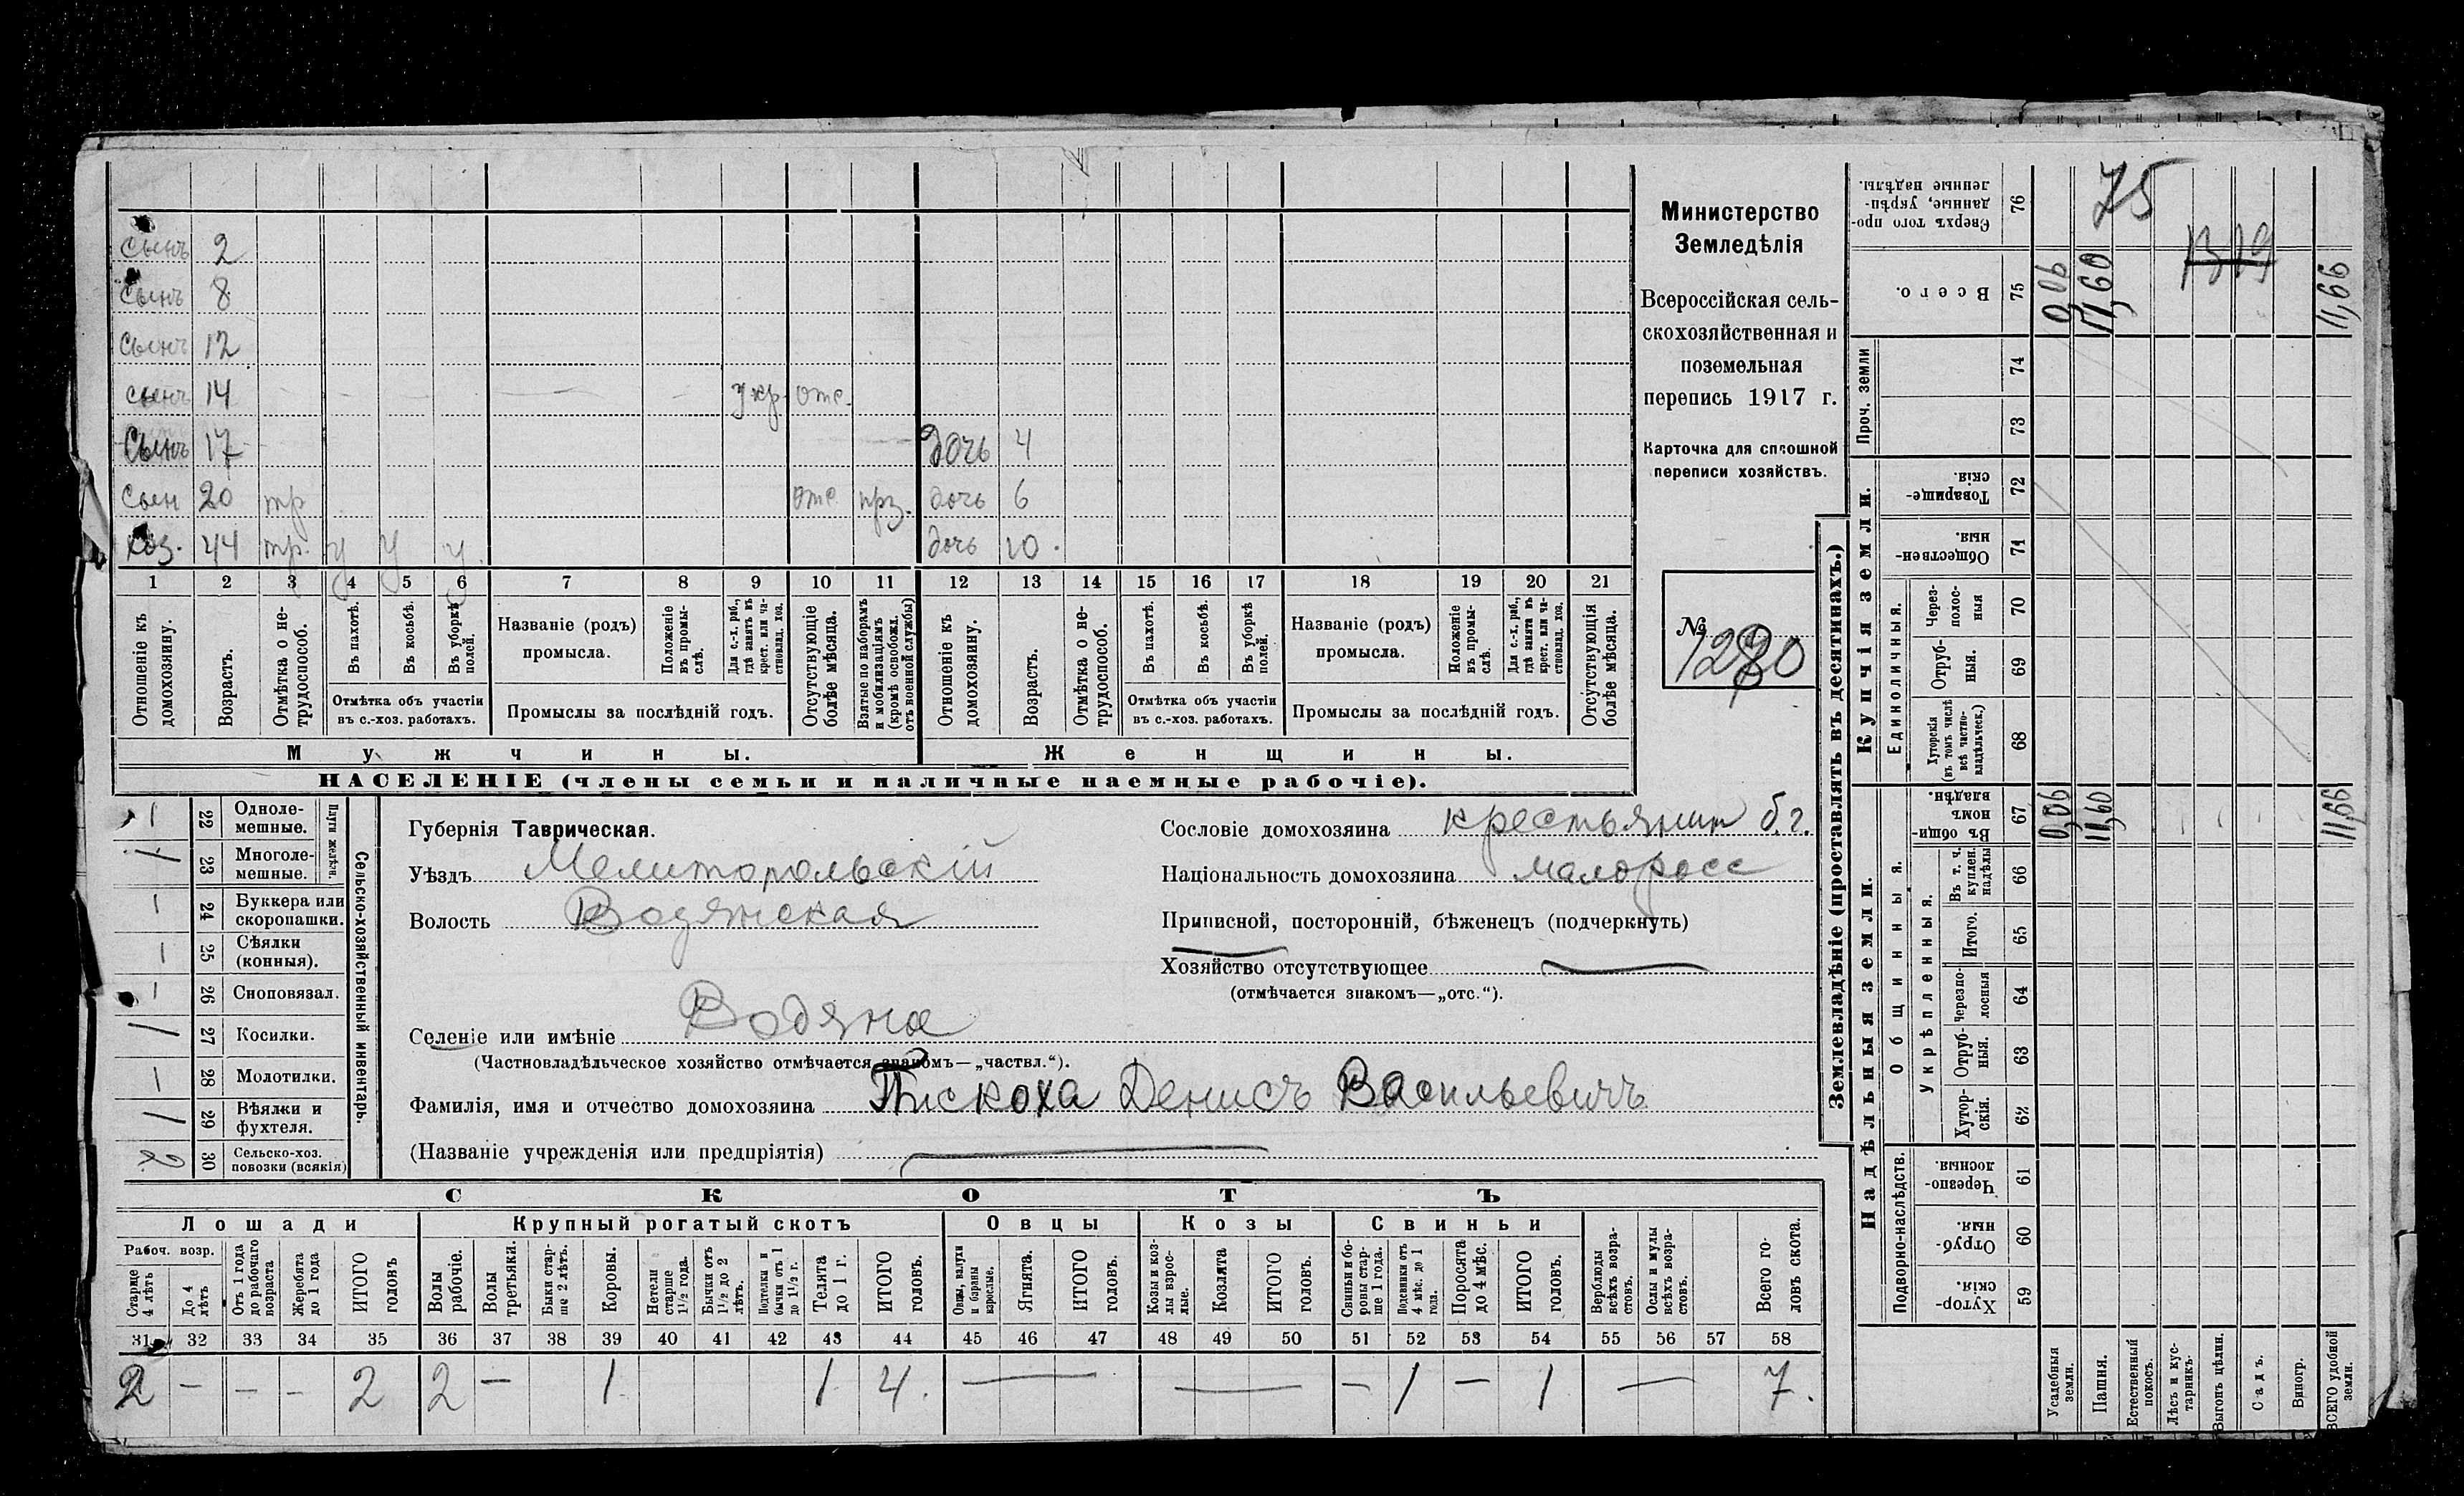 сынъ 2
сынъ 8
сынъ 12
сынъ 14 — — — — — — укр. отс.
Сынъ 17 дочь 4
сын 20 тр отс прз. дочь 6
хоз. 44 тр. у у у. дочь 10.
1 2 3 4 5 6 7 8 9 10 11 12 13 14 15 16 17 18 19 20 21
Отношеніе къ домохозяину.
Возрастъ.
Отмѣтка о нетрудоспособ.
Въ пахотѣ.
Въ косьбѣ.
Въ уборкѣ полей.
Отмѣтка объ участіи въ с.-хоз. работахъ.
Названіе (родъ) промысла.
Положеніе въ промыслѣ.
Для с.-х. раб., гдѣ занятъ въ крест. или частновлад. хоз.
Промыслы за послѣдній годъ.
Отсутствующіе болѣе мѣсяца.
Взятые по наборамъ и мобилизаціямъ (кромѣ освобожд. отъ военной службы)
Отношеніе къ домохозяину.
Возрастъ.
Отмѣтка о нетрудоспособ.
Въ пахотѣ.
Въ косьбѣ.
Въ уборкѣ полей.
Отмѣтка объ участіи въ с.-хоз. работахъ.
Названіе (родъ) промысла.
Положеніе въ промыслѣ.
Для с.-х. раб., гдѣ занята въ крест. или частновлад. хоз.
Промыслы за послѣдній годъ.
Отсутствующія болѣе мѣсяца.
Мужчины. Женщины.
НАСЕЛЕНІЕ (члены семьи и наличные наемные рабочіе).
Министерство
Земледѣлія
Всероссійская сель-
скохозяйственная и
поземельная
перепись 1917 г.
Карточка для сплошной
переписи хозяйствъ.
№
Сельско-хозяйственный инвентарь.
Плуги желѣзн.
1 22 Одноле-мешные.
1 23 Многоле-мешные.
— 24 Буккера или скоропашки.
— 25 Сѣялки (конныя).
— 26 Сноповязал.
1 27 Косилки.
— 28 Молотилки.
1 29 Вѣялки и фухтеля.
2 30 Сельско-хоз. повозки (всякія)
Губернія Таврическая.
Уѣздъ Мелитопольскій
Волость Водянская
Селеніе или имѣніе Водяна
(Частновладѣльческое хозяйство отмѣчается знакомъ—„частвл.“).
Фамилія, имя и отчество домохозяина Пискоха Денисъ Васильевичъ
(Названіе учрежденія или предпріятія) —
Сословіе домохозяина крестьянин б.г.
Національность домохозяина малоросс
Приписной, посторонній, бѣженецъ (подчеркнуть)
Хозяйство отсутствующее —
(отмѣчается знакомъ—„отс.“).
СКОТЪ
Лошади Крупный рогатый скотъ Овцы Козы Свиньи
Рабоч. возр.
Старше 4 лѣтъ
До 4 лѣтъ
Отъ 1 года до рабочаго возраста
Жеребята до 1 года
ИТОГО головъ
Волы рабочіе.
Волы третьяки.
Быки старше 2 лѣтъ.
Коровы.
Нетели старше 1½ года.
Бычки отъ 1½ до 2 лѣтъ.
Подтелки и бычки отъ 1 до 1½ г.
Телята до 1 г.
ИТОГО головъ.
Овцы, валухи и бараны взрослые.
Ягнята.
ИТОГО головъ.
Козы и козлы взрослые.
Козлята
ИТОГО головъ.
Свиньи и боровы старше 1 года.
Подсвинки отъ 4 мѣс. до 1 года.
Поросята до 4 мѣс.
ИТОГО головъ.
Верблюды всѣхъ возрастовъ.
Ослы и мулы всѣхъ возрастовъ.
Всего головъ скота.
31 32 33 34 35 36 37 38 39 40 41 42 43 44 45 46 47 48 49 50 51 52 53 54 55 56 57 58
2 — — — 2 2 — 1 1 4. — — — 1 — 1 — 7.
Землевладѣніе (проставлять въ десятинахъ.)
Надѣльныя земли. Купчія земли.
Подворно-наслѣдств.
Общинныя.
Укрѣпленныя.
Единоличныя.
Проч. земли
76 Сверхъ того проданные, укрѣпленные надѣлы. 75
75 Всего. 0,06 11,60 11,66
74
73
72 Товарищескія.
71 Общественныя.
70 Черезполосныя
69 Отрубныя.
68 Хуторскія (въ томъ числѣ всѣ частновладѣльческ.)
67 Въ общиномъ владѣн. 0,06 11,60 11,66
66 Въ т. ч. куплен. надѣлы
65 Итого.
64 Черезполосныя
63 Отрубныя.
62 Хуторскія.
61 Черезполосныя.
60 Отрубныя.
59 Хуторскія.
Усадебныя земли.
Пашня.
Естественый покосъ.
Лѣсъ и кустарникъ.
Выгонъ цѣлин.
Садъ.
Виногр.
ВСЕГО удобной земли.